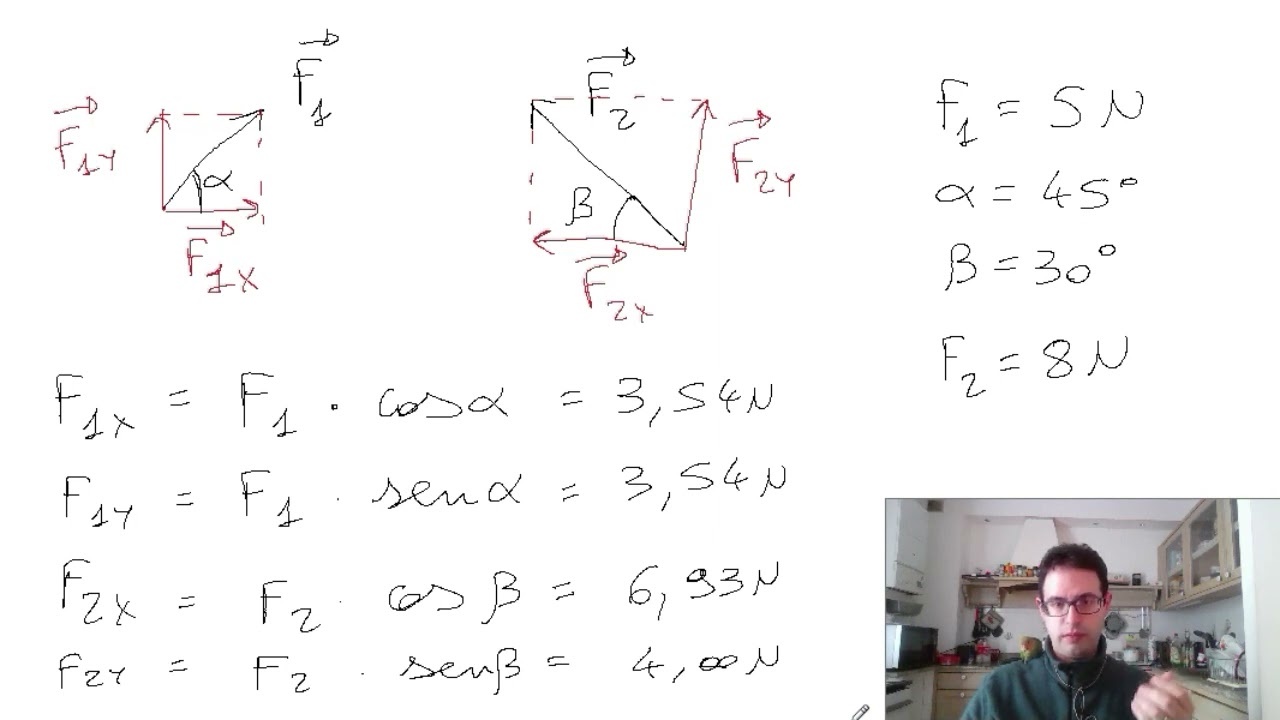 F₁
F₁ᵧ
α
F₁ₓ
F₂
F₂ᵧ
β
F₂ₓ
F₁ = 5 N
α = 45°
β = 30°
F₂ = 8 N
F₁ₓ = F₁ · cos α = 3,54 N
F₁ᵧ = F₁ · sen α = 3,54 N
F₂ₓ = F₂ · cos β = 6,93 N
F₂ᵧ = F₂ · sen β = 4,00 N